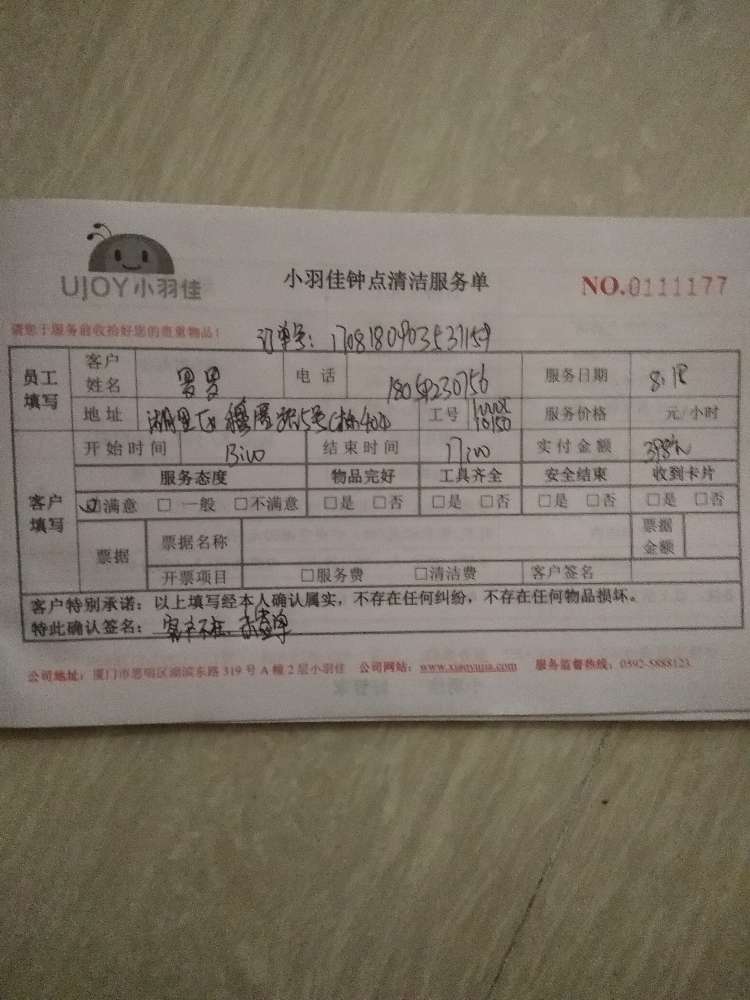 UJOY小羽佳
小羽佳钟点清洁服务单
NO.0111177
请您于服务前收拾好您的贵重物品!
订单号:
员工填写 客户姓名 电话 服务日期 8.18
地址 湖里区 5号 404 工号 服务价格 元/小时
开始时间 13:00 结束时间 17:00 实付金额
客户填写 服务态度 物品完好 工具齐全 安全结束 收到卡片
☑满意 □一般 □不满意 □是 □否 □是 □否 □是 □否 □是 □否
票据 票据名称 票据金额
开票项目 □服务费 □清洁费 客户签名
客户特别承诺:以上填写经本人确认属实,不存在任何纠纷,不存在任何物品损坏。
特此确认签名:客户不在
公司地址:厦门市思明区湖滨东路319号A幢2层小羽佳 公司网站: 服务监督热线:0592-5888123